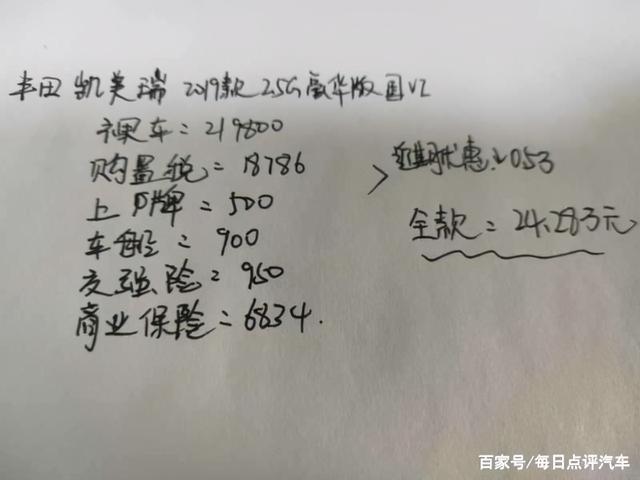 丰田 凯美瑞 2019款 2.5G 豪华版 国VI
裸车=219800
购置税=18786
上户牌=500
车船=900
交强险=950
商业保险=6834.
近期优惠
全款=24.283元
百家号/每日点评汽车